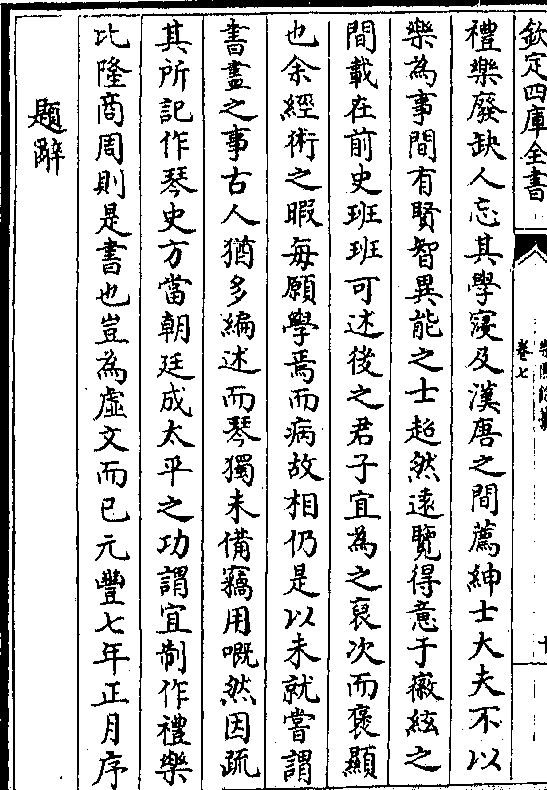 欽定四庫全書
卷七
禮樂廢缺人忘其學寖及漢唐之間薦紳士大夫不以
樂為事間有賢智異能之士超然遠覽得意于徽絃之
間載在前史班班可述後之君子宜為之裒次而褒顯
也余經術之暇每願學焉而病故相仍是以未就嘗謂
書畫之事古人猶多編述而琴獨未備竊用嘅然因疏
其所記作琴史方當朝廷成太平之功謂宜制作禮樂
比隆商周則是書也豈為虛文而已元豐七年正月序
題辭